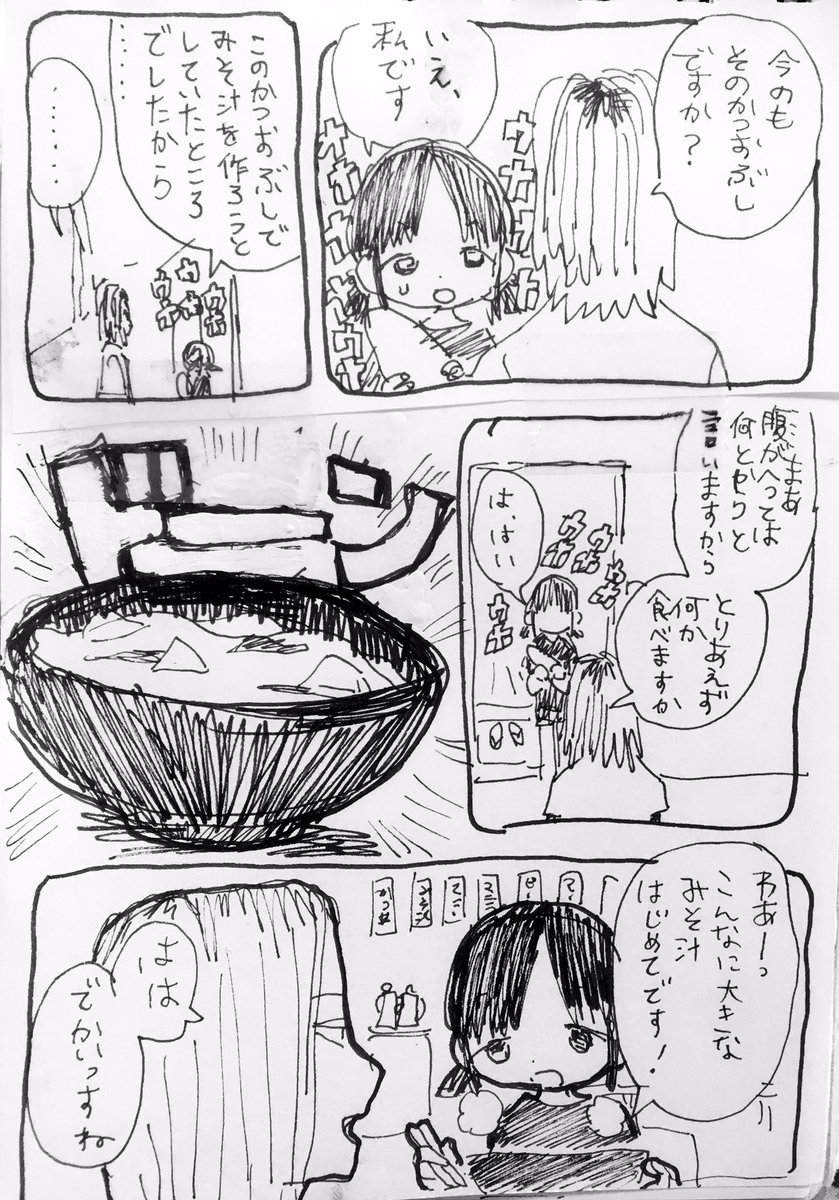 今のも
そのかつおぶし
ですか？
いえ、
私です
ウカ
ウカ
ウカ
このかつおぶしで
みそ汁を作ろうと
していたところ
でしたから
……
……
まあ
腹がへっては
何とやりと
言いますから
とりあえず
何か
食べますか
は、はい
わあーっ
こんなに大きな
みそ汁
はじめてです！
はは
でかいっすね